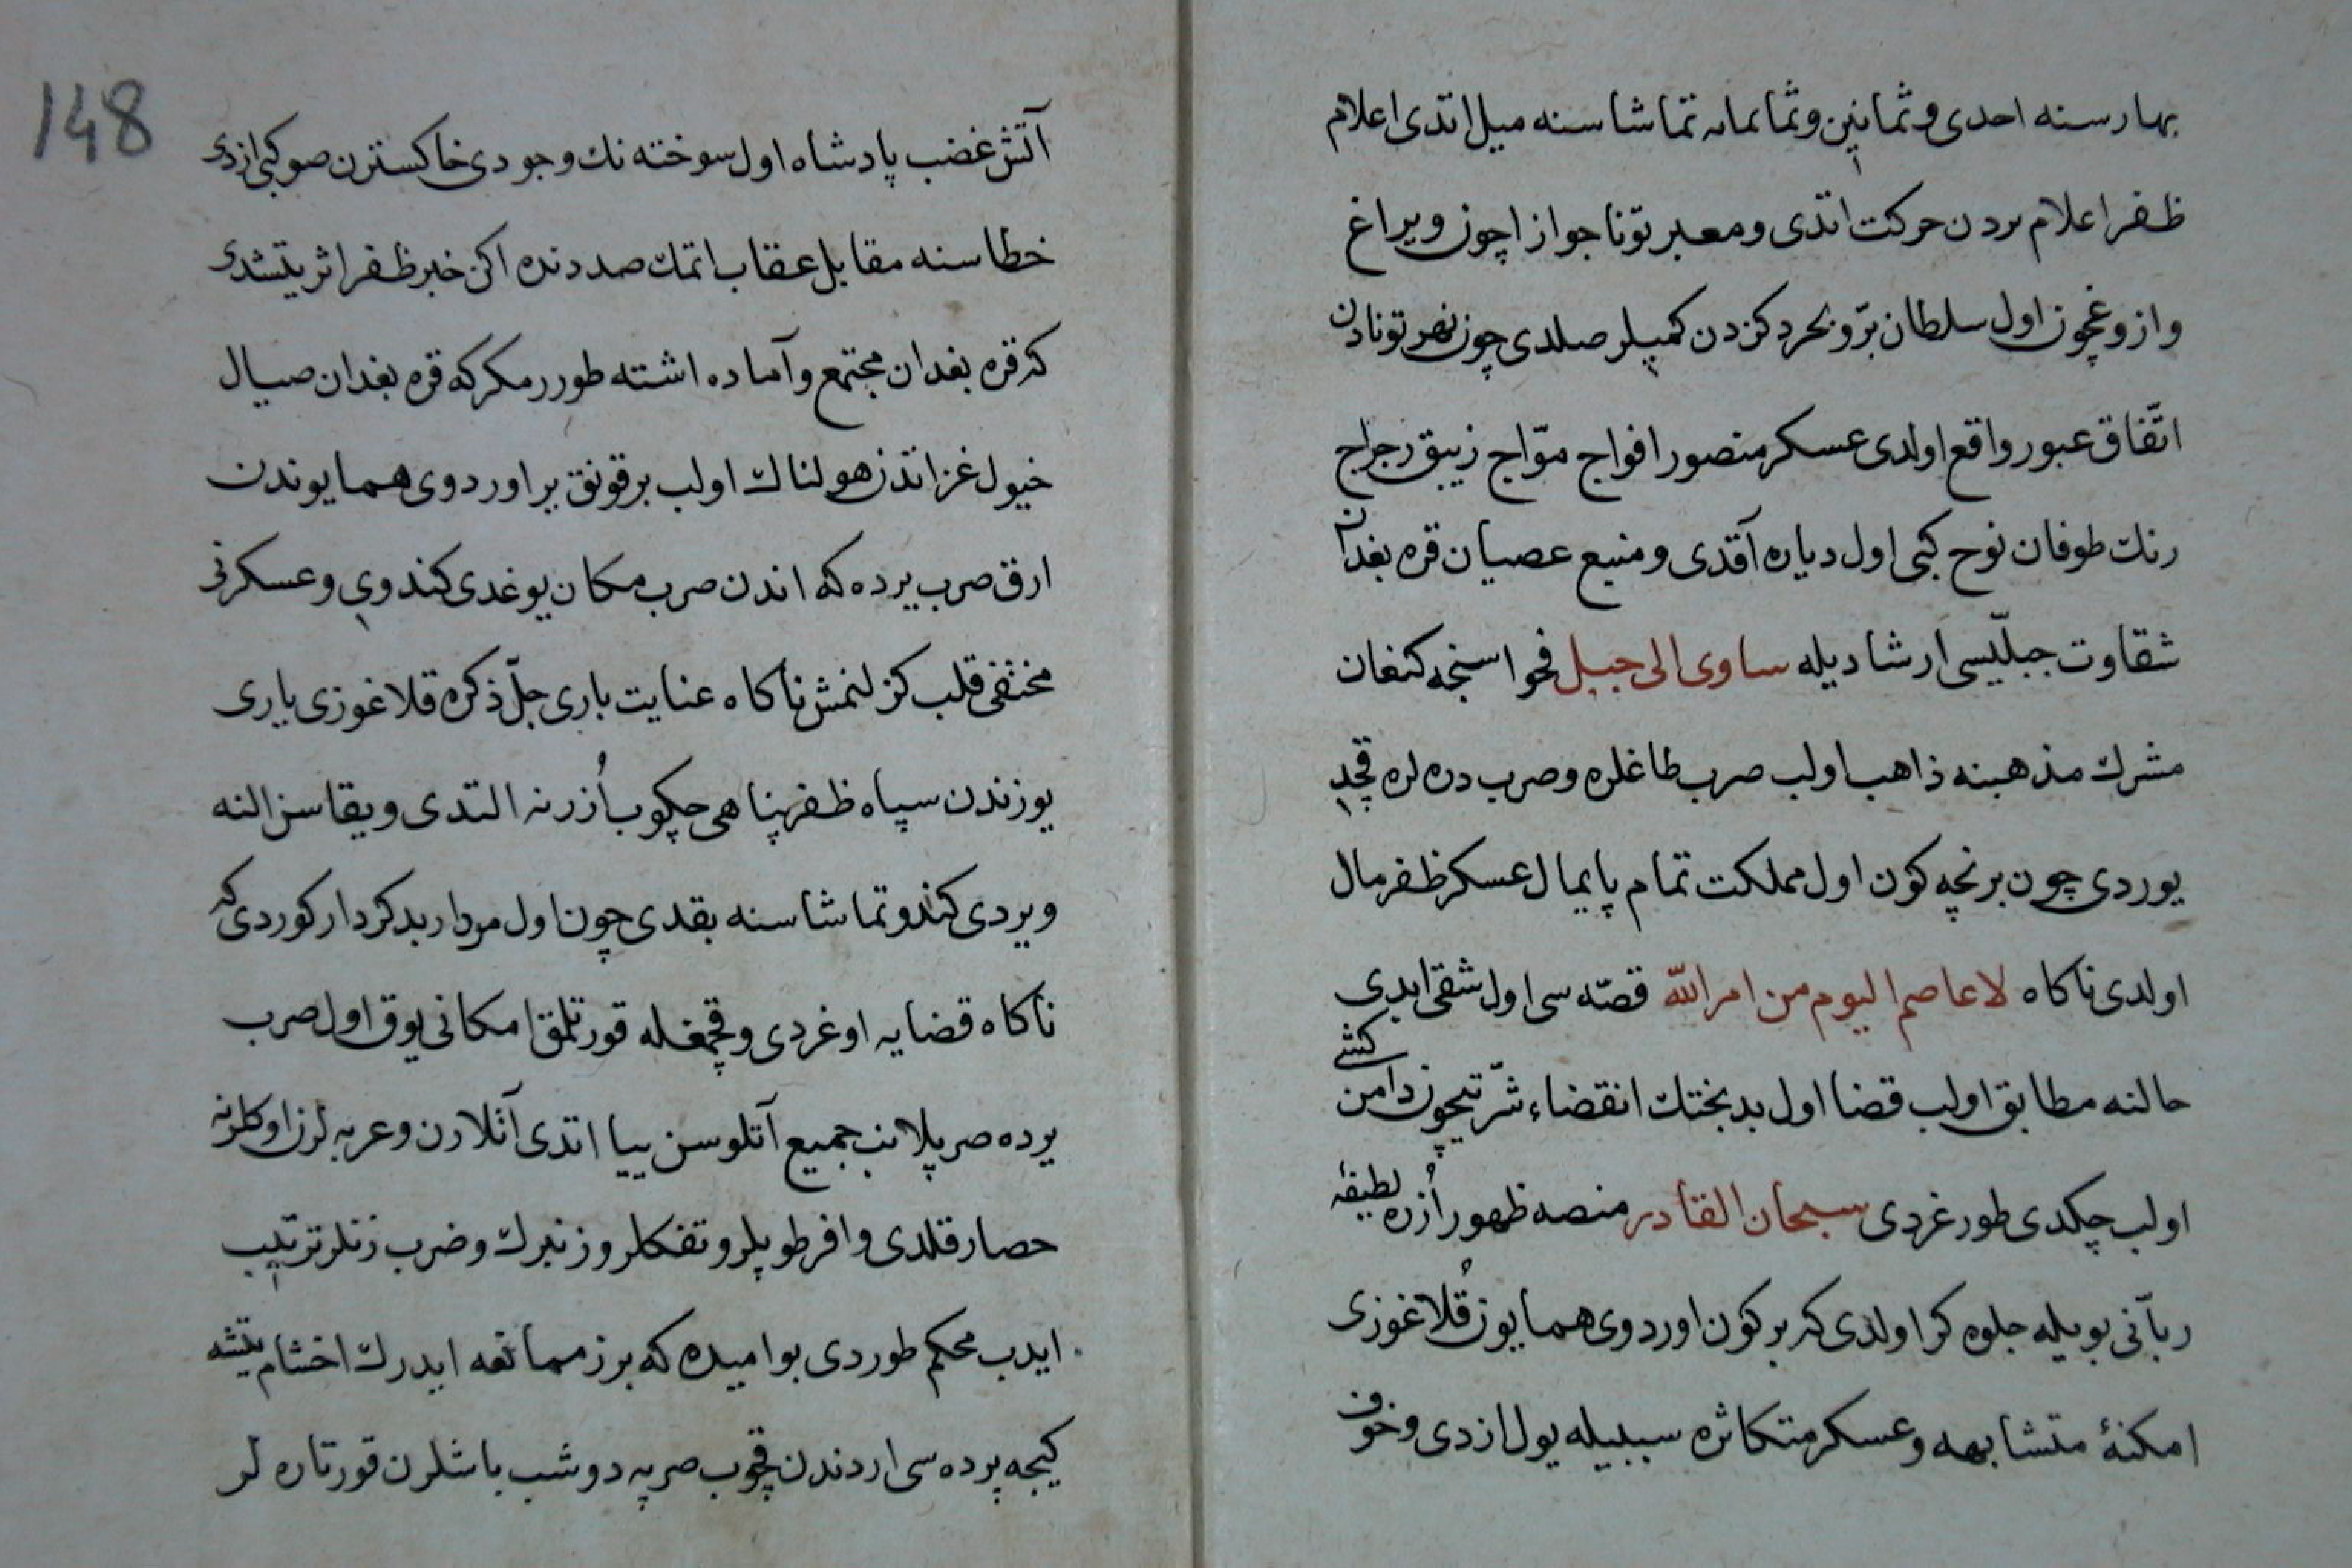 بهار سنه احدی و ثمانین و ثمانمایه تماشاسنه میل اتدی اعلام
ظفر اعلام بردن حرکت اتدی و معبر تونا جواز اچون و یراغ
و ازوغچون اول سلطان بر و بحر دکزدن کمیلر صلدی چون نهر تونادن
اتّفاق عبور واقع اولدی عسکر منصور افواج موّاج زیبق رجراج
رنك طوفان نوح کبی اول دیاره آقدی و منبع عصیان قره بغدان
شقاوت جبلّیسی ارشادیله ساوی الی جبل فحواسنجه کنعان
مشرك مذهبنه ذاهب اولب صرب طاغلره و صرب دره لره قچدی
یوردی چون برنچه کون اول مملکت تمام پایمال عسکر ظفرمال
اولدی ناکاه لا عاصم الیوم من امر اللّه قصّه سی اول شقیّ ابدی
حالنه مطابق اولب قضا اول بدبختك انقضاء شرّتیچون دامن کشی
اولب چکدی طورغردی سبحان القادر منصه ظهور اُزره لطیفهٔ
ربّانی بویله جلوه کر اولدی که بر کون اوردوی همایون قُلاغوزی
امکنهٔ متشابهه و عسکر متکاثره سببیله یول ازدی و خوف
148
آتش غضب پادشاه اول سوخته نك وجودی خاکسترن صو کبی ازدی
خطاسنه مقابل عقاب اتمك صددنده اکن خبر ظفر اثر یتشدی
که قره بغدان مجتمع و آماده اشته طورر مکر که قره بغدان صیال
خیول غزاتدن هولناك اولب بر قونق یر اوردوی همایوندن
ارق صرب یرده که اندن صرب مکان یوغدی کندوی و عسکرنی
مختفی قلب کزلنمش ناکاه عنایت باری جلّ ذکره قلاغوزی یاری
یوزندن سپاه ظفرپناهی چکوب اُزرنه التدی و یقاسن النه
ویردی کندو تماشاسنه بقدی چون اول مردار بدکردار کوردی که
ناکاه قضایه اوغردی و قچمغله قورتلمق امکانی یوق اول صرب
یرده صرپلانب جمیع آتلوسن ییا اتدی آتلارن و عربه لرن اوکلرنه
حصار قلدی وافر طوپلر و تفکلر و زنبرك و ضرب زنلر ترتیب
ایدب محکم طوردی بو امیده که برز ممانعه ایدرك اخشام یتشه
کیجه پرده سی اردندن قچوب صرپه دوشب باشلرن قورتاره لر